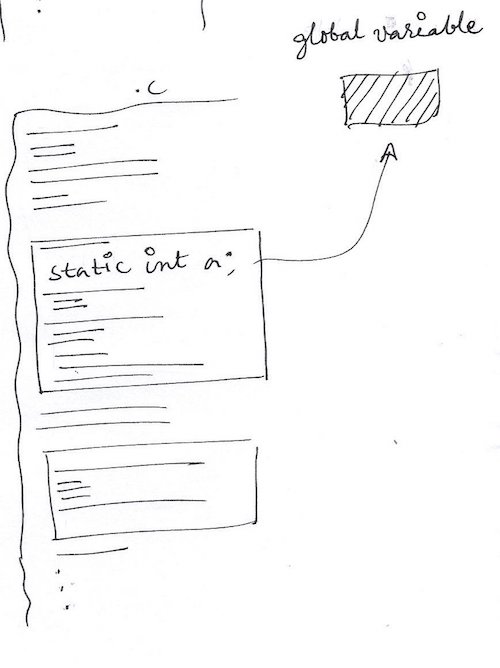 global variable
.c
static int a;